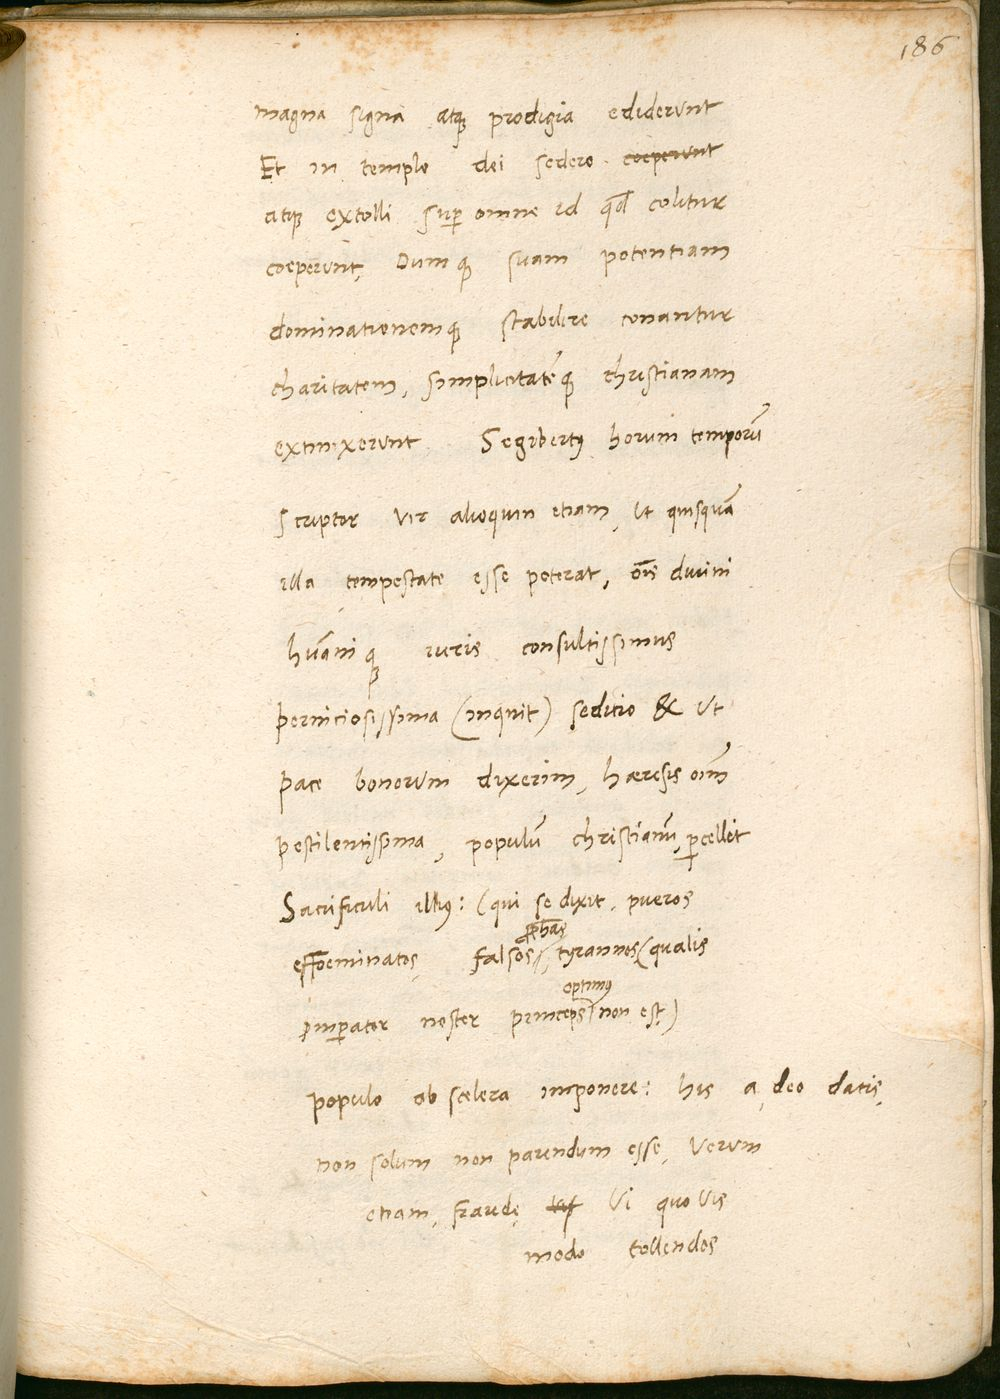 186
magna signa atq prodigia ediderunt
Et in templo dei sedere coeperunt
atq extolli sup omne id qd colitur
coeperunt, Dumq suam potentiam
dominationemq stabilire conantur
charitatem, simplicitatēq christianam
extinxerunt Segibertꝰ horum temporū
scriptor vir alioquin etiam, ut quisquā
illa tempestate esse poterat, oīs divini
huāniq iuris consultissimus
perniciosissima (inquit) seditio & ut
pace bonorum dixerim, hæresis oīm
pestilentissima, populū christianū, pcellit
Sacrificuli illiꝰ: (qui se dixit, pueros
effoeminatos, falsos pphãs, tyrannos (qualis
impator noster princeps optimꝰ non est)
populo ob scelera imponere: his a deo datis,
non solum non parendum esse, verum
etiam, fraude, vi quovis
modo tollendos